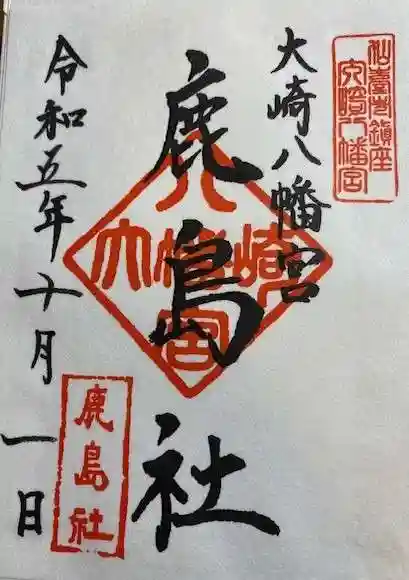 仙臺市鎮座
大崎八幡宮
大崎八幡宮
鹿島社
八
大幡崎
宮
令和五年十月一日
鹿島社